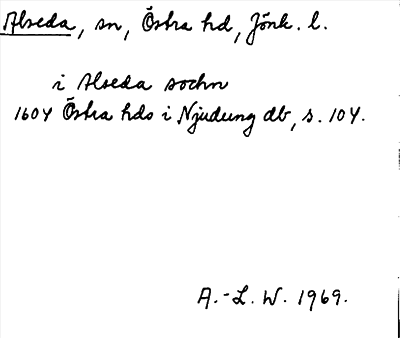 Alseda, sn, Östra hd, Jönk. l.
i Alseda sochn
1604 Östra hds i Njudung db, s. 104.
A.-L. W. 1969.